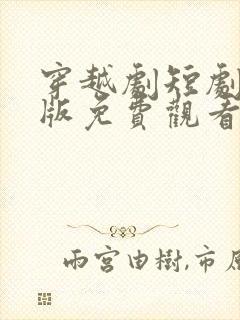 穿越劇短劇
版免費觀看
雨宮由樹,市原